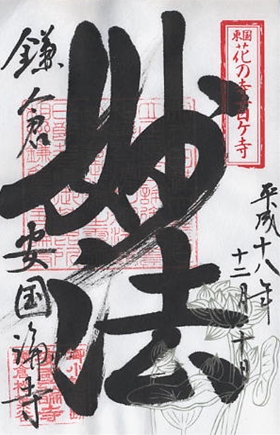 東国
花の寺百ケ寺
平成十八年
十二月二十日
妙法
鎌倉 安国論寺